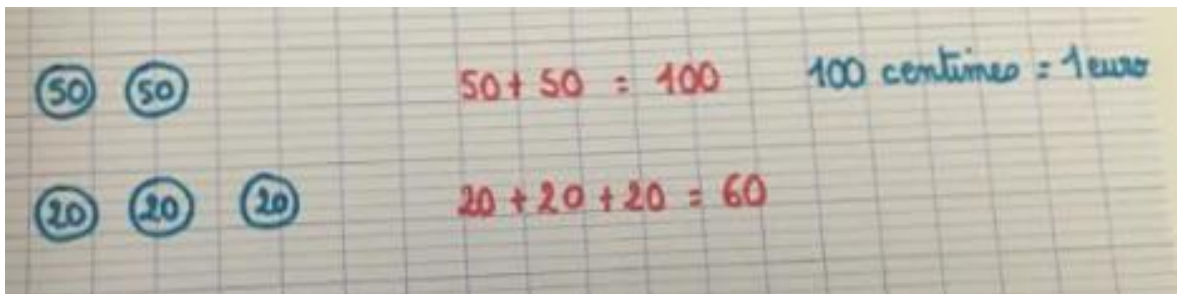 50 50 50+ 50 = 100 100 centimes = 1 euro
20 20 20 20 + 20 + 20 = 60